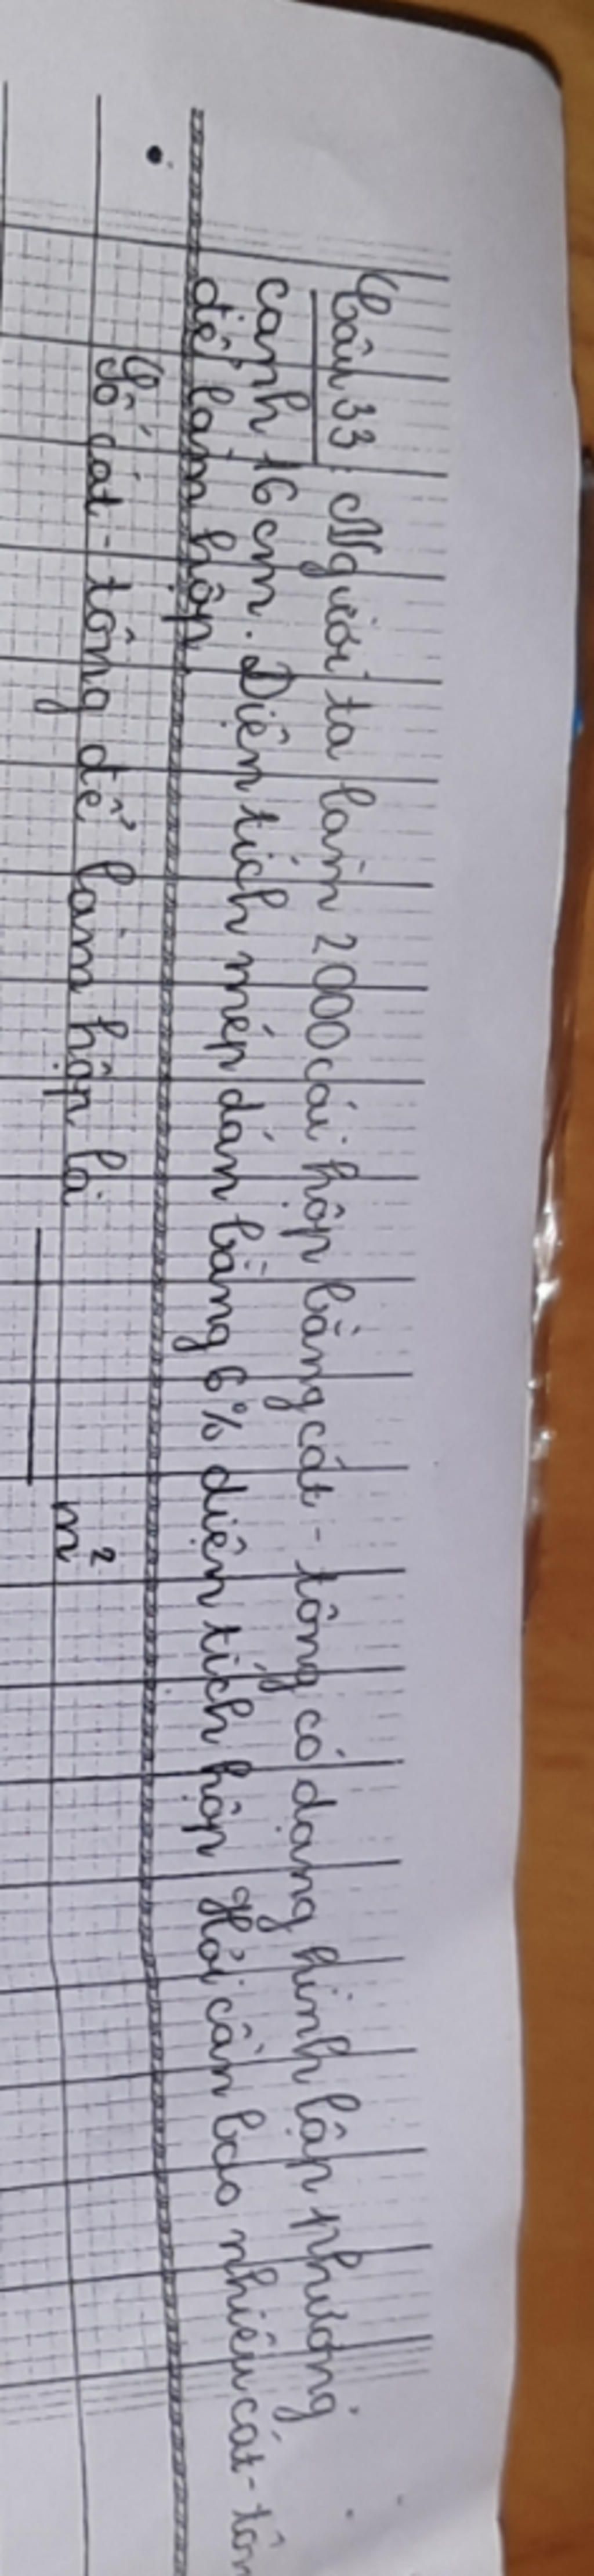 Câu 33: Người ta làm 2000 cái hộp bằng cát - tông có dạng hình lập phương
cạnh 16 cm. Diện tích mép dán bằng 6% diện tích hộp Hỏi cần bao nhiêu cát - tôn
để làm hộp
Số cát - tông để làm hộp là m²